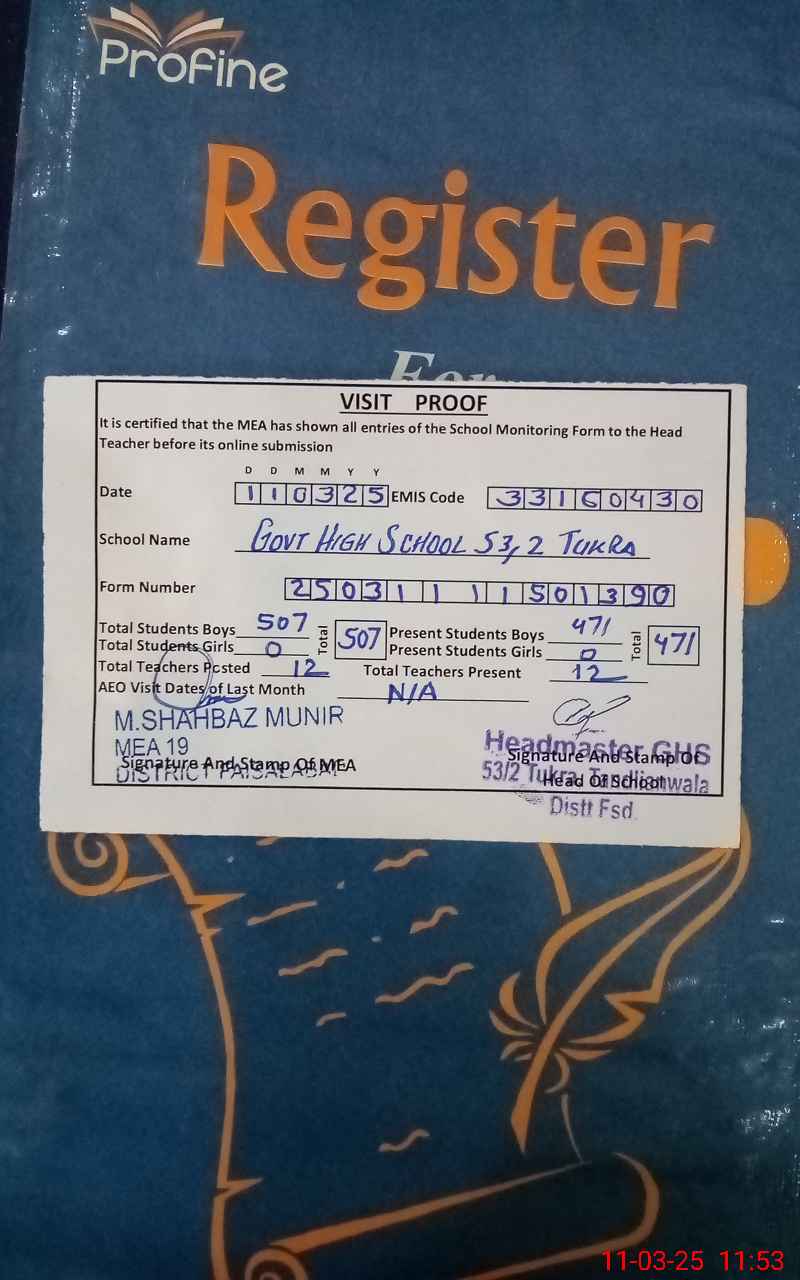 Profine
Register
For
VISIT PROOF
It is certified that the MEA has shown all entries of the School Monitoring Form to the Head
Teacher before its online submission
D D M M Y Y
Date 110325 EMIS Code 33160430
School Name GOVT HIGH SCHOOL 53,2 TUKRA
Form Number 250311 11501390
Total Students Boys 507 Total 507 Present Students Boys 471 Total 471
Total Students Girls 0 Present Students Girls 0
Total Teachers Posted 12 Total Teachers Present 12
AEO Visit Dates of Last Month N/A
M.SHAHBAZ MUNIR
MEA 19
DISTRICT FAISALABAD
Signature And Stamp Of MEA
Headmaster GHS
Signature And Stamp Of
53/2 Tukra, Tandlianwala
Head Of School
Distt Fsd.
11-03-25 11:53